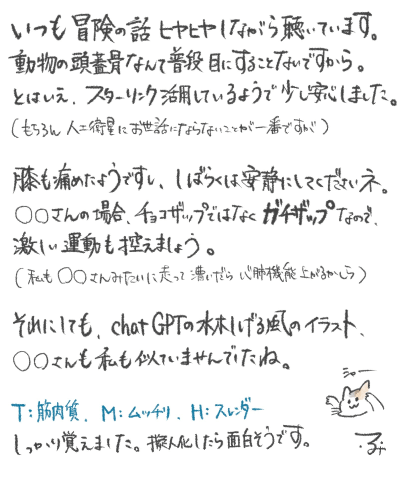 いつも冒険の話ヒヤヒヤしながら聴いています。
動物の頭蓋骨なんて普段目にすることないですから。
とはいえ、スターリンク活用しているようで少し安心しました。
(もちろん人工衛星にお世話にならないことが一番ですが)
膝も痛めたようですし、しばらくは安静にしてくださいネ。
○○さんの場合、チョコザップではなくガチザップなので、
激しい運動も控えましょう。
(私も○○さんみたいに走って漕いだら心肺機能上がるかしら)
それにしても、chatGPTの水木しげる風のイラスト、
○○さんも私も似ていませんでしたね。
シャー
T:筋肉質、M:ムッチリ、H:スレンダー
しっかり覚えました。擬人化したら面白そうです。
るみ